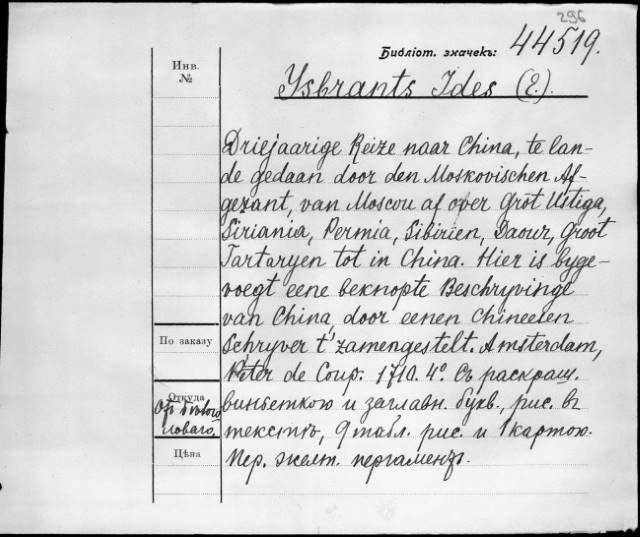 296
Библіот. значекъ: 44519.
Инв.
№
Ysbrants Ides (E.).
Driejaarige Reize naar China, te lan-
de gedaan door den Moskovischen Af-
gezant, van Moscou af over Grot Ustiga,
Siriania, Permia, Sibirien, Daour, Groot
Tartaryen tot in China. Hier is byge-
voegt eene beknopte Beschryvinge
van China, door eenen Chineesen
Schryver t'zamengestelt. Amsterdam,
Pieter de Coup. 1710. 4º. Съ раскраш.
виньеткою и заглавн. букв., рис. въ
текстѣ, 9 табл. рис. и 1 картою.
Пер. желт. пергаментъ.
По заказу
Откуда
Цѣна